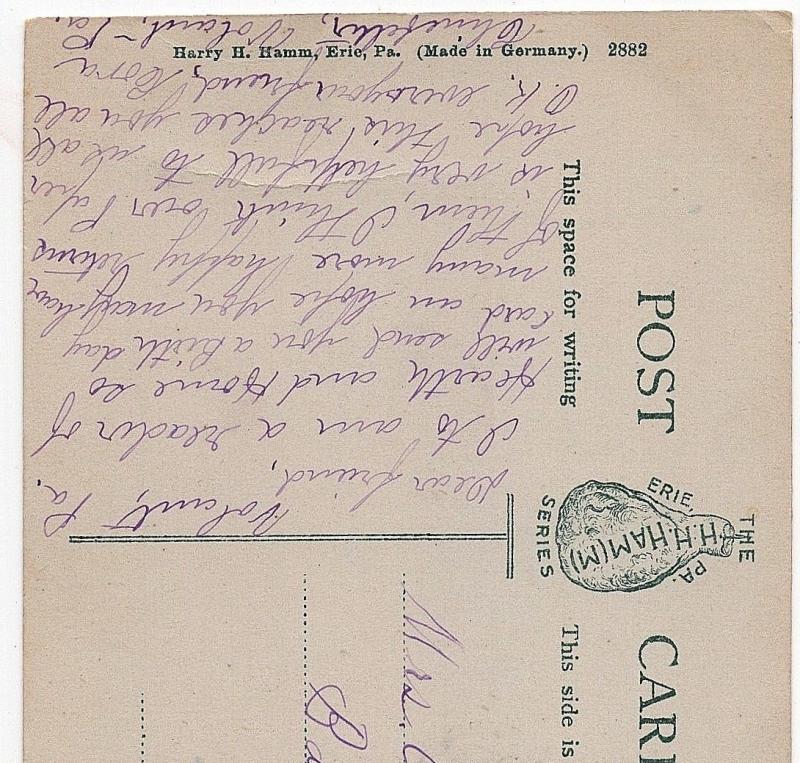 Harry H. Hamm, Erie, Pa. (Made in Germany.) 2882
POST CAR
This space for writing
This side is
THE
H.H.HAM(M)
ERIE,
PA.
SERIES
Volant, Pa.
Dear friend,
I to am a reader of
Hearth and Home so
will send you a Birth day
card an hope you may have
many more happy returns
of them, I think our Paper
is very helpfull to us all
hope this reaches you all
O.K. ever your friend, Cora
Volant, Pa.
Mrs.